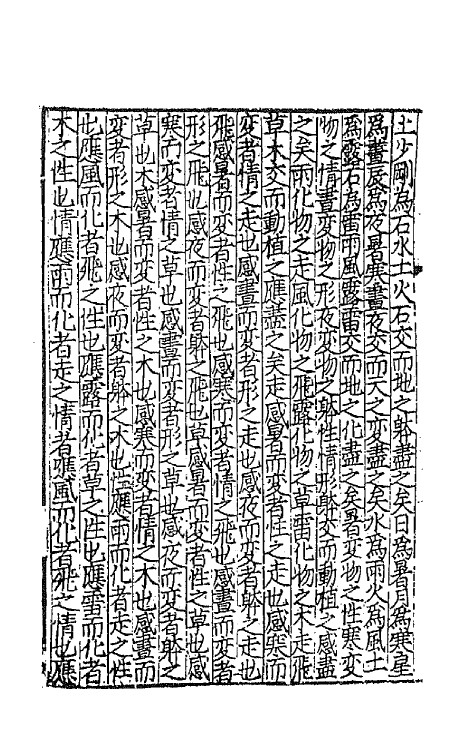 土少剛為石水土火石交而地之躰盡之矣日為暑月為寒星
為晝辰為夜暑寒晝夜交而天之変盡之矣水為雨火為風土
為露石為雷雨風露雷交而地之化盡之矣暑変物之性寒変
物之情晝変物之形夜変物之躰性情形躰交而動植之感盡
之矣雨化物之走風化物之飛露化物之草雷化物之木走飛
草木交而動植之應盡之矣走感暑而変者性之走也感寒而
変者情之走也感晝而変者形之走也感夜而変者躰之走也
飛感暑而変者性之飛也感寒而変者情之飛也感晝而変者
形之飛也感夜而変者躰之飛也草感暑而変者性之草也感
寒而変者情之草也感晝而変者形之草也感夜而変者躰之
草也木感暑而変者性之木也感寒而変者情之木也感晝而
変者形之木也感夜而変者躰之木也性應雨而化者走之性
也應風而化者飛之性也應露而化者草之性也應雷而化者
木之性也情應雨而化者走之情者應風而化者飛之情也應